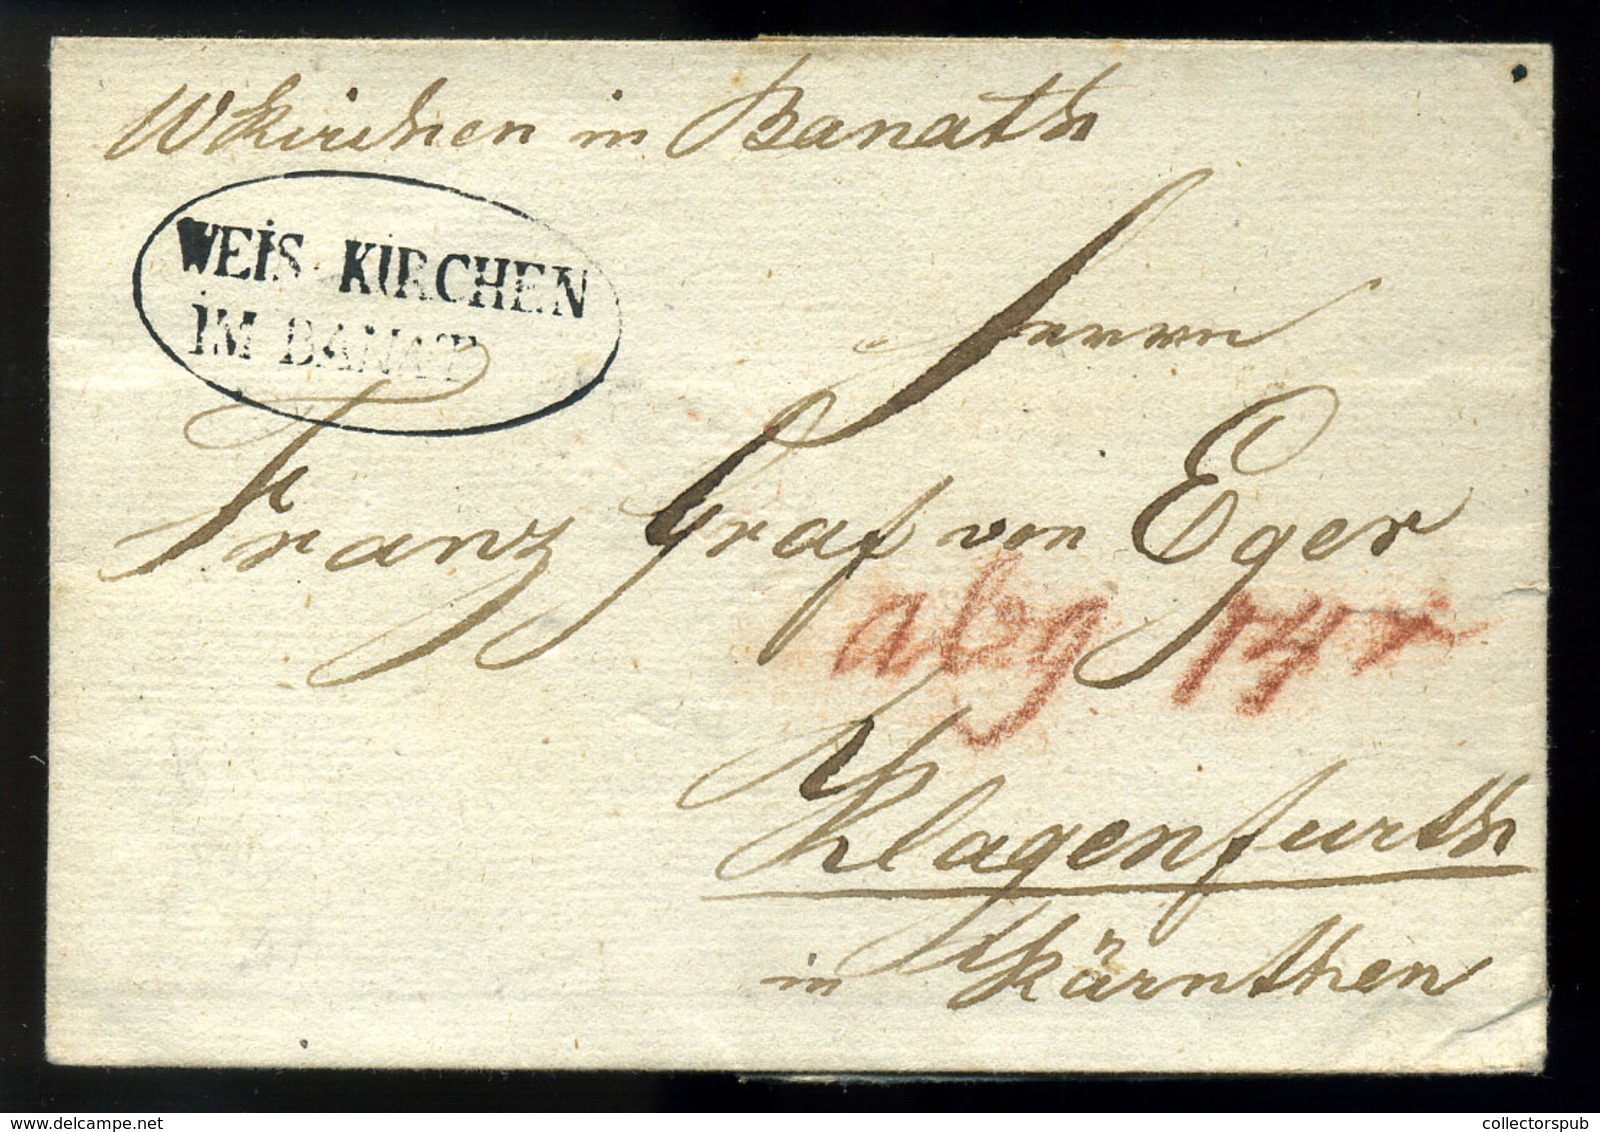 Wkirchen in Banath
WEIS KIRCHEN
IM BANAT
Herrn
Franz Graf von Eger
abg
Klagenfurth
in Kärnthen
collectorspub